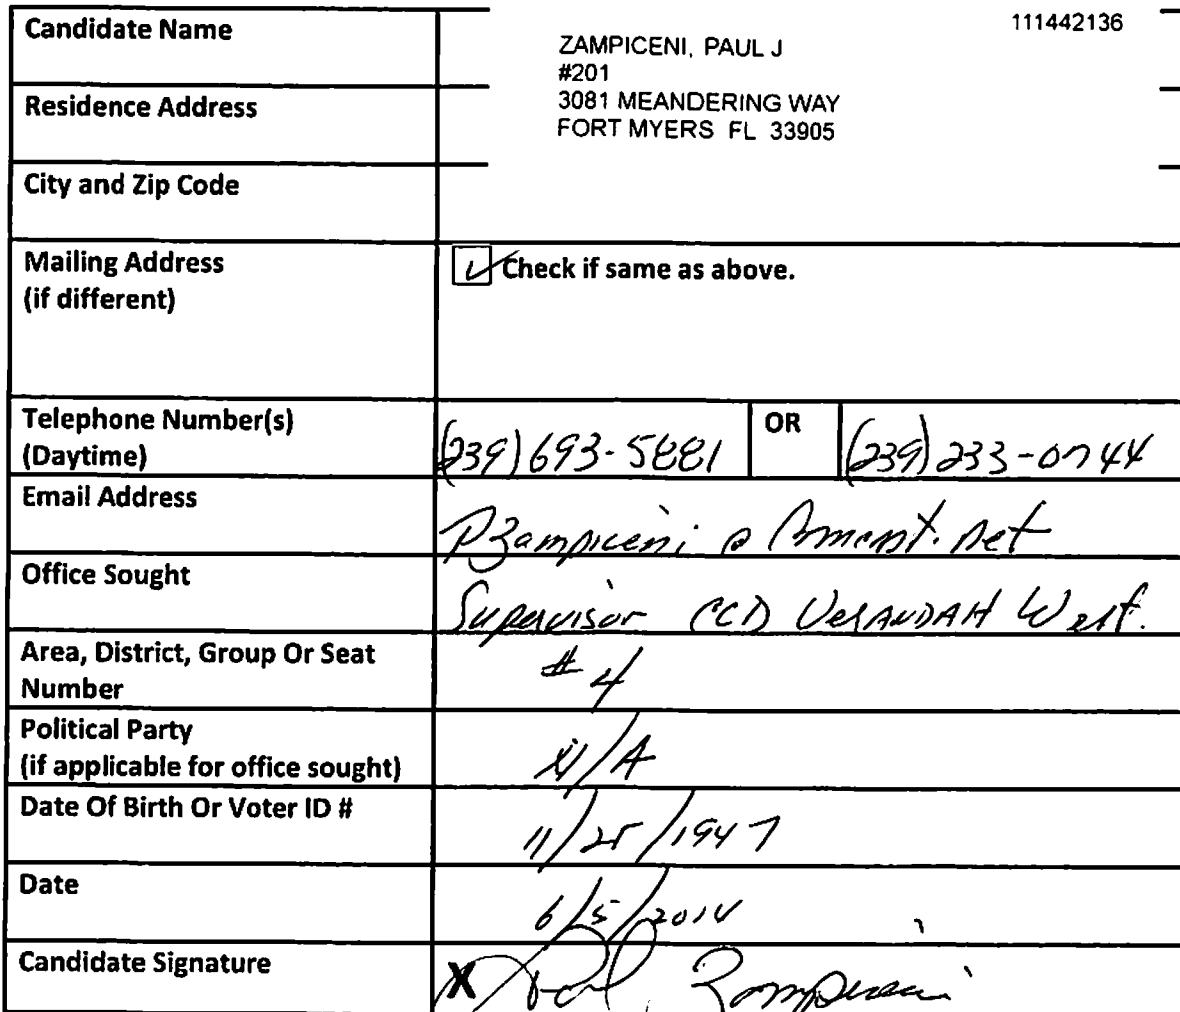 Candidate Name
111442136
ZAMPICENI, PAUL J
#201
Residence Address
3081 MEANDERING WAY
FORT MYERS FL 33905
City and Zip Code
Mailing Address
(if different)
Check if same as above.
Telephone Number(s)
(Daytime)
(239) 693-5881 OR (239) 233-0744
Email Address
Pzampiceni @ .net
Office Sought
Supervisor CCD VerANDAH West.
Area, District, Group Or Seat
Number
# 4
Political Party
(if applicable for office sought)
N/A
Date Of Birth Or Voter ID #
11/25/1947
Date
6/5/2014
Candidate Signature
X Paul Zampiceni